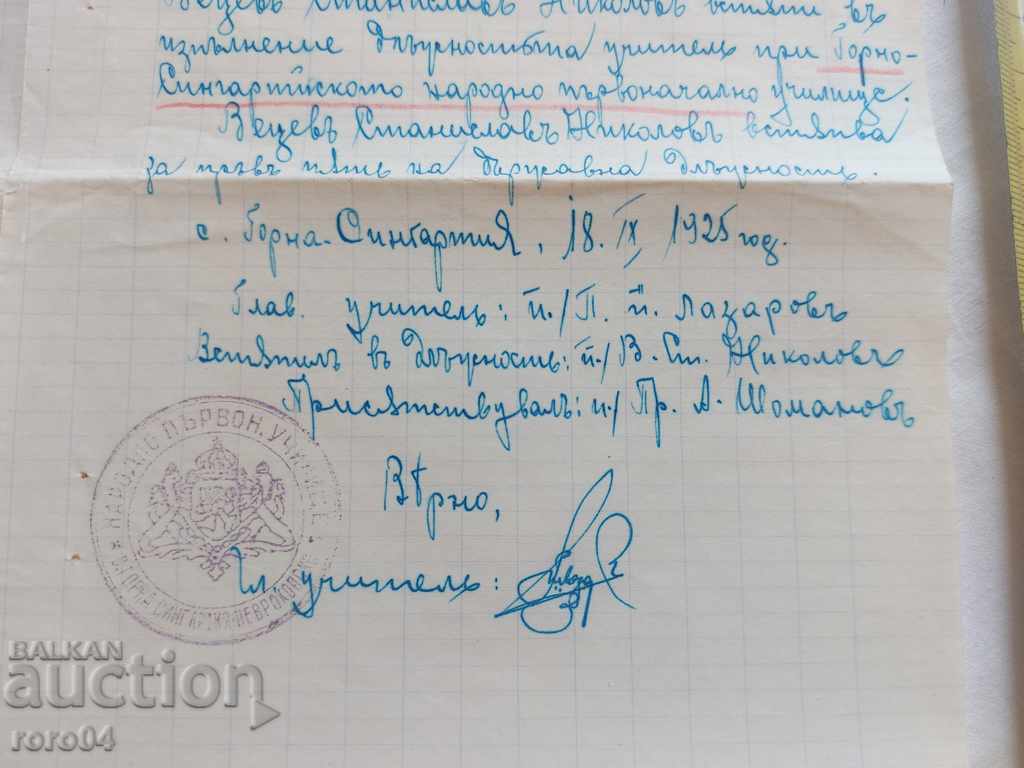 Вецевъ Станиславъ Николовъ встѫпи въ
изпълнение длъжностьта учитель при Горно-
Сингартйското народно първоначално училище.
Вецевъ Станиславъ Николовъ встѫпва
за првъ пѫть на държавна длъжность.
с. Горна-Сингартия, 18. IX 1925 год.
Глав. учитель: п./ П. п. Лазаровъ
Встѫпилъ въ длъжность: п./ В. Ст. Николовъ
Присѫтствувалъ: п./ Пр. А. Шомановъ
НАРОДНО ПЪРВОН. УЧИЛИЩЕ
Вѣрно,
Гл. учитель:
BALKAN
auction
roro04